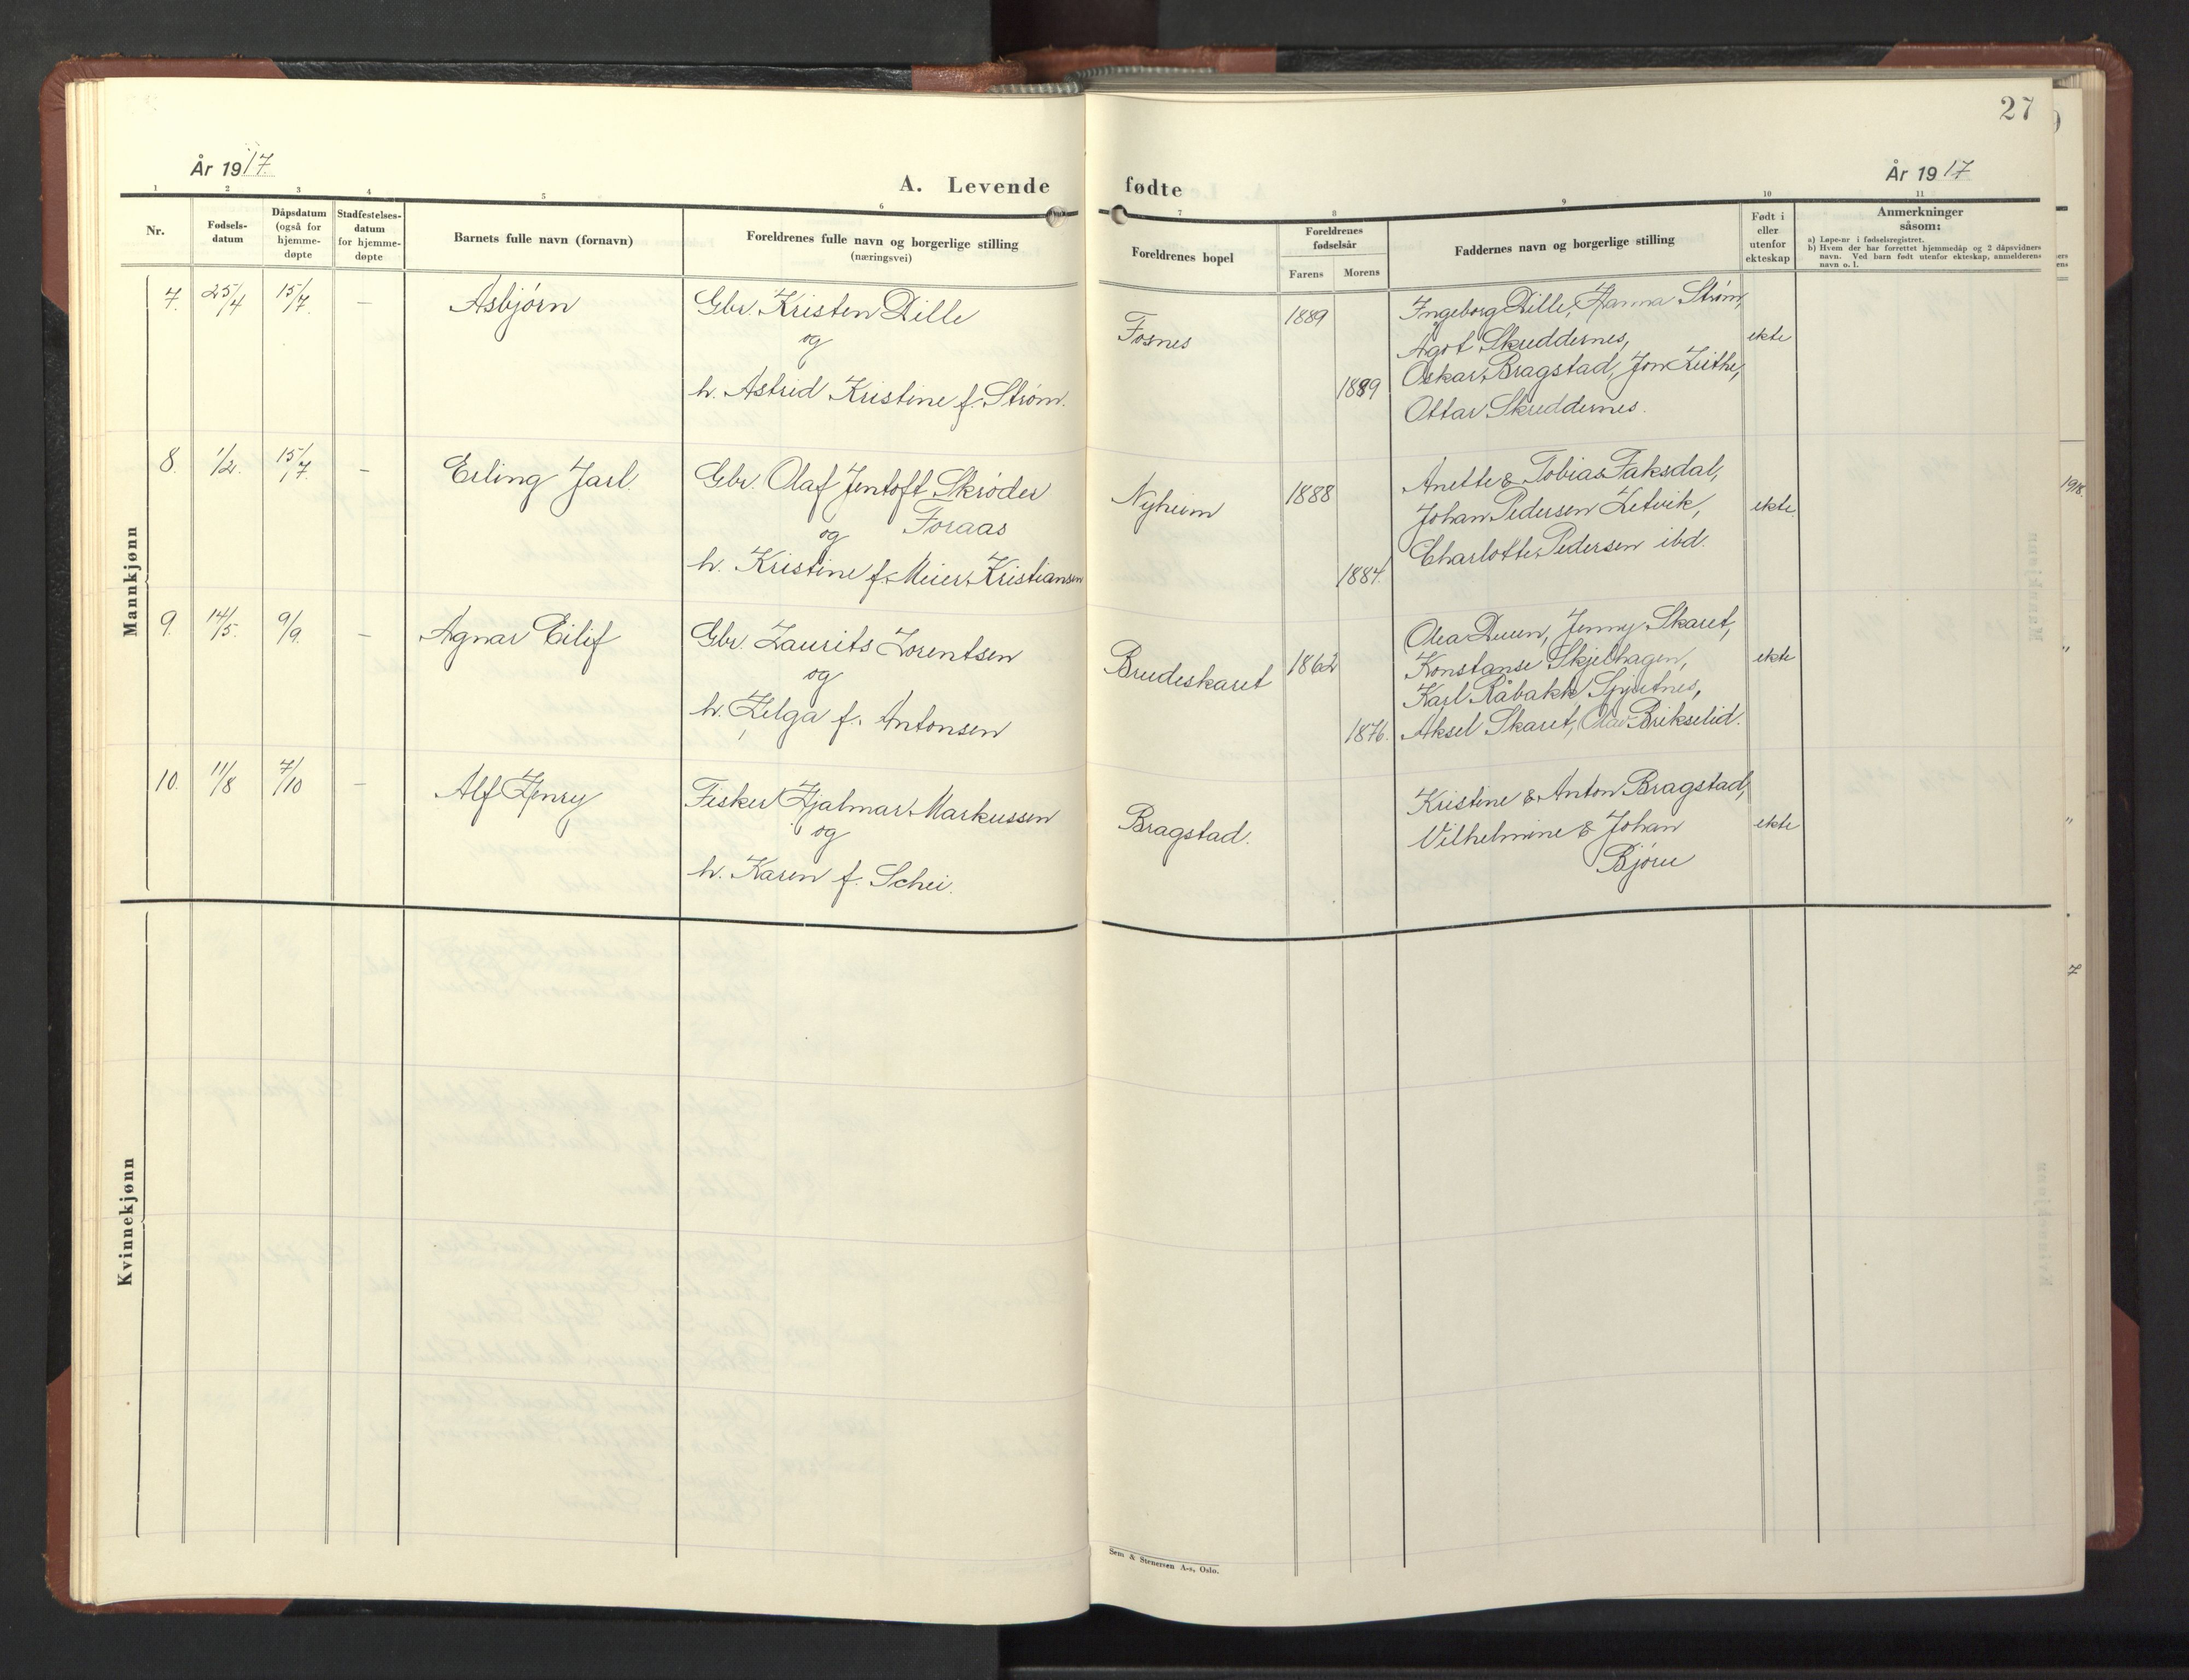 27
År 1917.
A. Levende fødte
År 1917
1 2 3 4 5 6 7 8 9 10 11
Nr.
Fødsels-
datum
Dåpsdatum
(også for
hjemme-
døpte
Stadfestelses-
datum
for hjemme-
døpte
Barnets fulle navn (fornavn)
Foreldrenes fulle navn og borgerlige stilling
(næringsvei)
Foreldrenes bopel
Foreldrenes
fødselsår
Farens Morens
Faddernes navn og borgerlige stilling
Født i
eller
utenfor
ekteskap
Anmerkninger
såsom:
a) Løpe-nr i fødselsregistret.
b) Hvem der har forrettet hjemmedåp og 2 dåpsvidners
navn. Ved barn født utenfor ekteskap, anmelderens
navn o. l.
Mannkjønn
7. 25/4 15/7. — Asbjørn
Gbr. Kristen Dille
og
h. Astrid Kristine f. Strøm.
Fosnes
1889
1889
Ingeborg Dille, Hanna Strøm,
Ågot Skuddernes,
Oskar Bragstad, Jon
Ottar Skuddernes.
ekte
8. 1/2. 15/7. — Erling Jarl
Gbr. Olaf Jentoft Skrøder
og Foraas
h. Kristine f. Meier Kristiansen
Nyheim
1888
1884.
Anette & Tobias Faksdal,
Johan Pedersen Setvik,
Charlotte Pedersen ibd.
ekte.
9. 14/5. 9/9. — Agnar Eilif
Gbr. Laurits Lorentsen
og
h. Helga f. Antonsen
Brudeskaret
1862
1876.
Olea Duun, Jenny Skaret,
Konstanse Skjelhagen,
Karl Råbakk
Aksel Skaret, Olav Brikselid.
ekte
10. 11/8 7/10 — Alf Henry
Fisker Hjalmar Markussen
og
h. Karen f. Schei.
Bragstad.
Kristine & Anton Bragstad,
Vilhelmine & Johan
Bjøru
ekte
Kvinnekjønn
1918.
"
"
7
Sem & Stenersen A-s, Oslo.